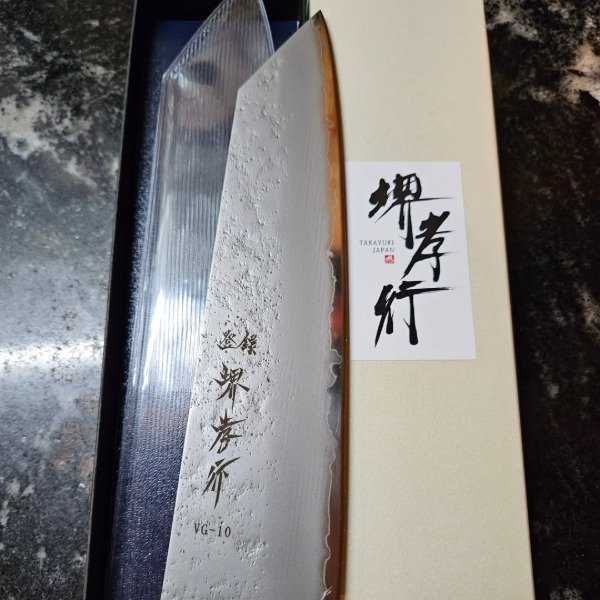 登録
堺孝行
VG-10
堺孝行
TAKAYUKI
JAPAN